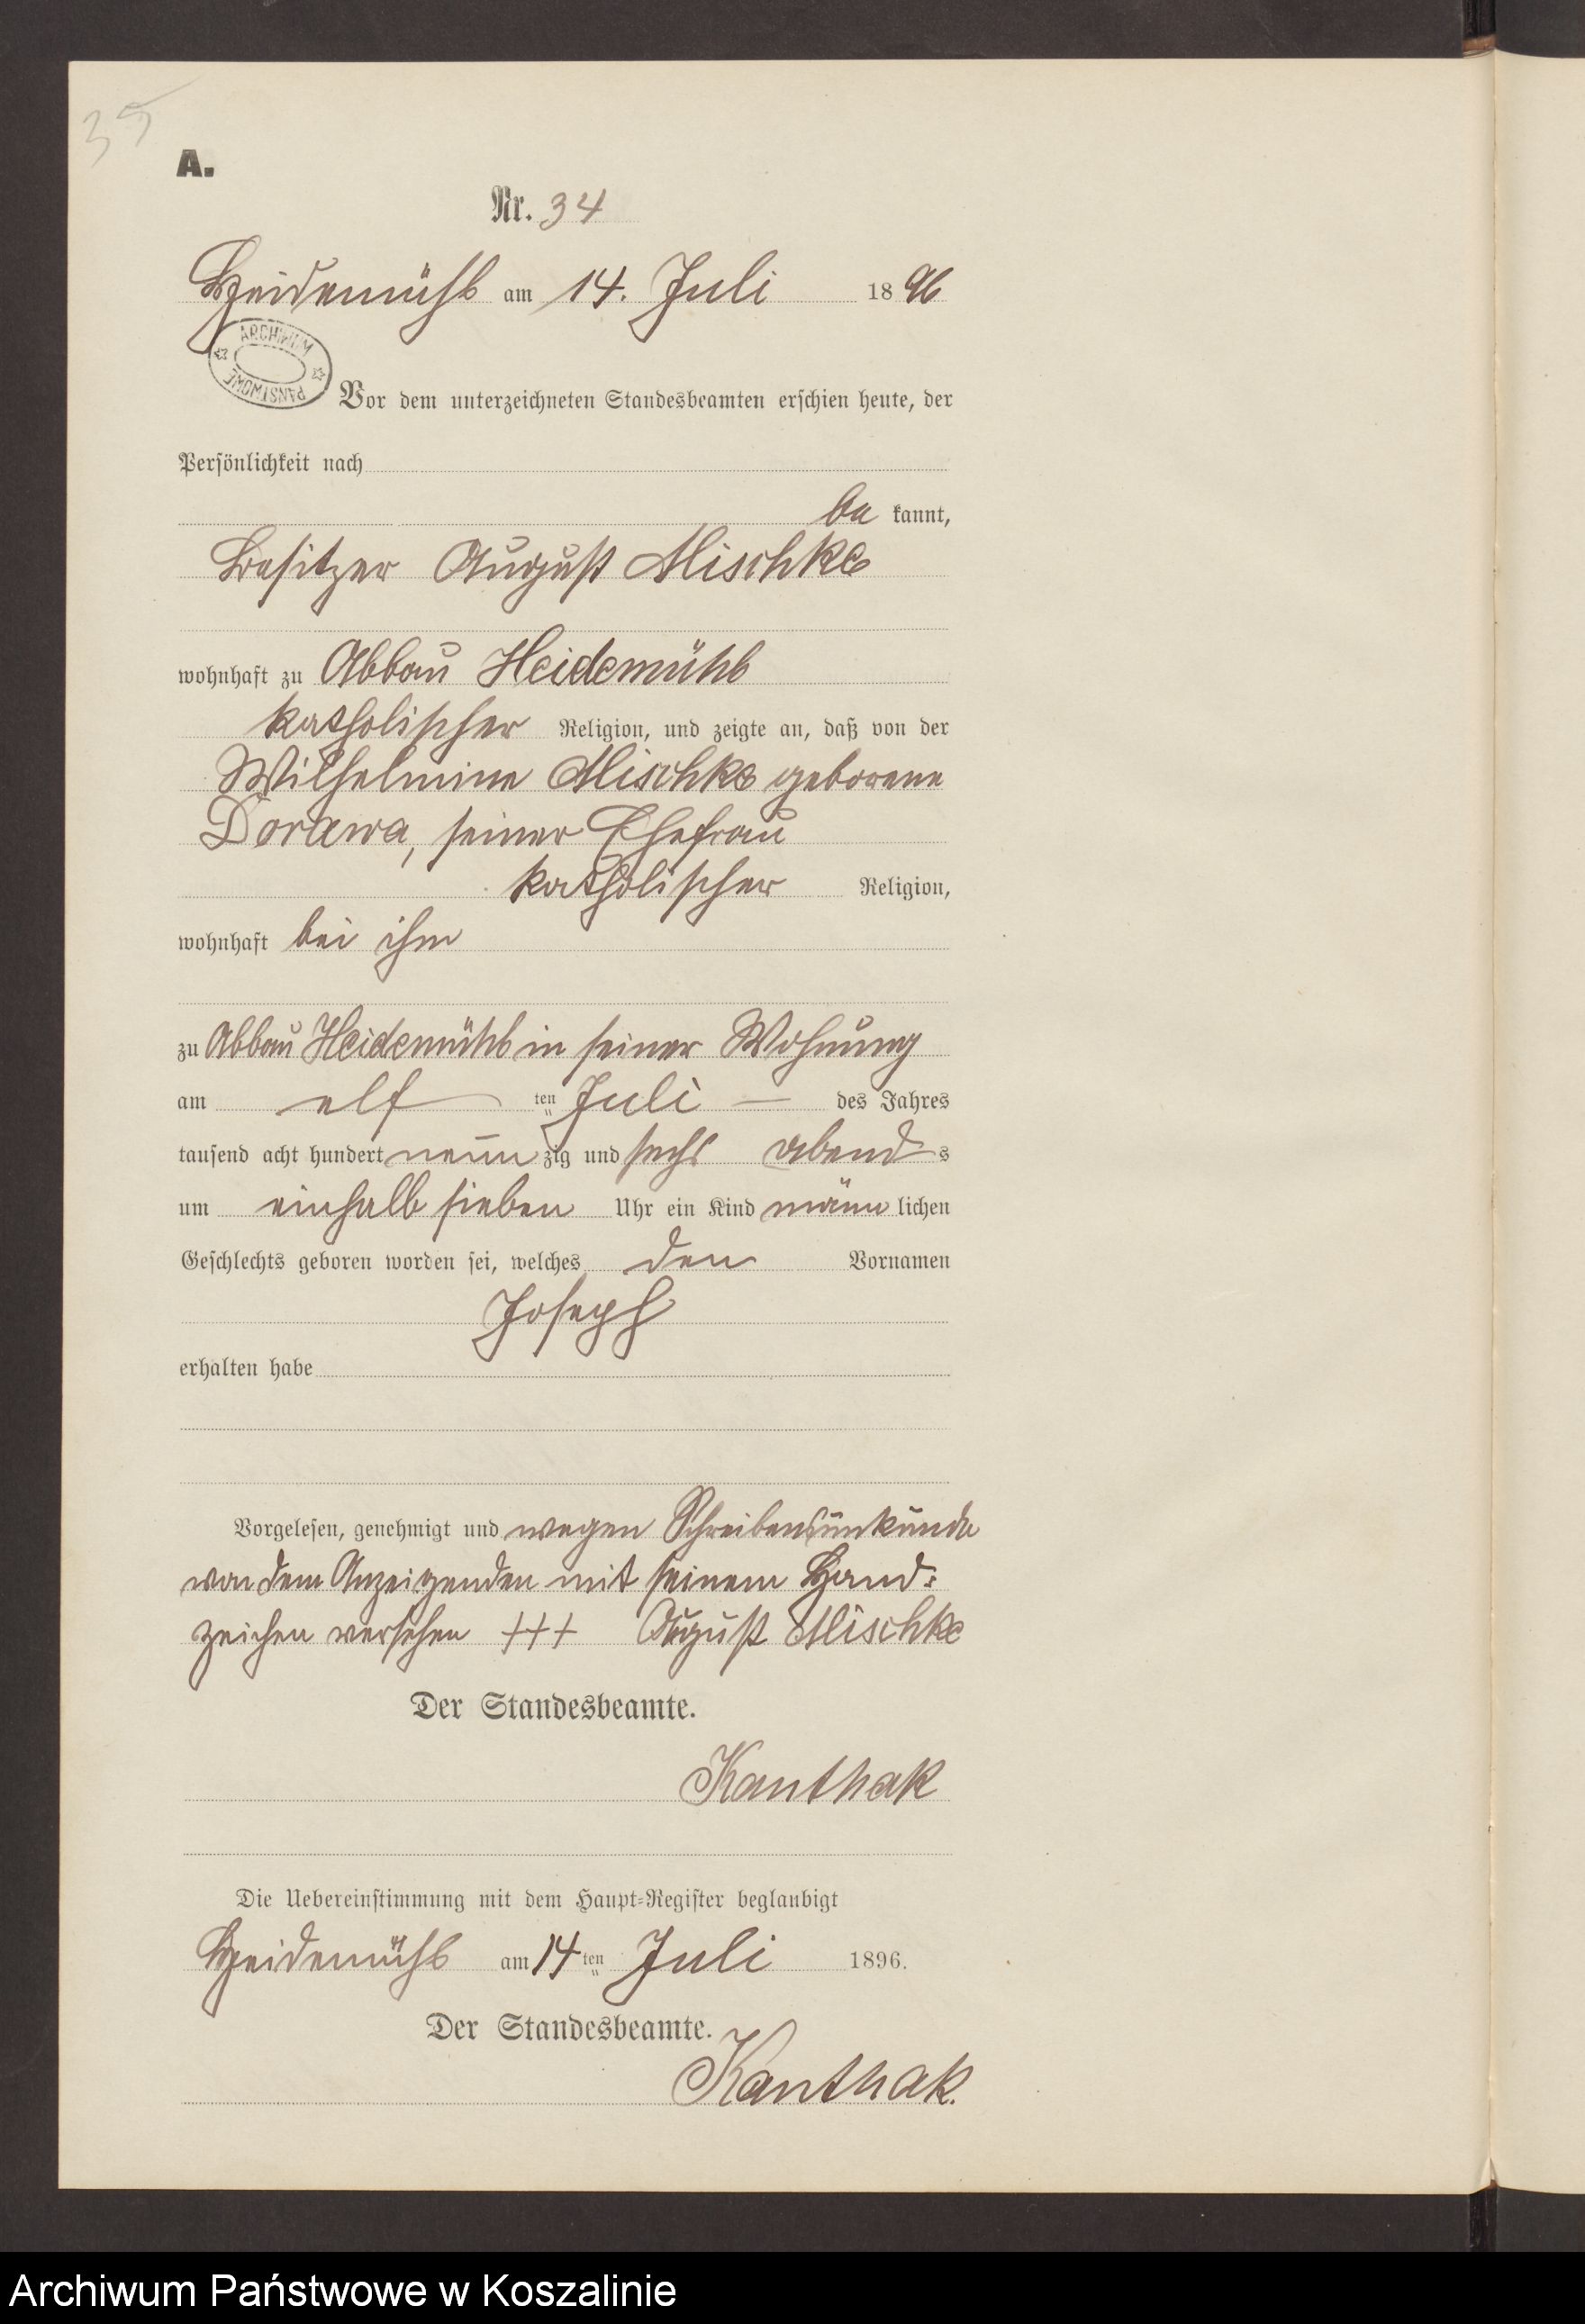 35
A.
Nr. 34
Heidemühl am 14. Juli 1896
ARCHIWUM PAŃSTWOWE
Vor dem unterzeichneten Standesbeamten erschien heute, der
Persönlichkeit nach
be kannt,
Besitzer August Mischke
wohnhaft zu Abbau Heidemühl
katholischer Religion, und zeigte an, daß von der
Wilhelmine Mischke geborene
Dorawa, seiner Ehefrau
katholischer Religion,
wohnhaft bei ihm
zu Abbau Heidemühl in seiner Wohnung
am elf ten Juli — des Jahres
tausend acht hundert neun zig und sechs abend s
um einhalb sieben Uhr ein Kind männ lichen
Geschlechts geboren worden sei, welches den Vornamen
Joseph
erhalten habe
Vorgelesen, genehmigt und wegen Schreibensunkunde
von dem Anzeigenden mit seinem Hand=
zeichen versehen +++ August Mischke
Der Standesbeamte.
Kanthak
Die Uebereinstimmung mit dem Haupt=Register beglaubigt
Heidemühl am 14 ten Juli 1896.
Der Standesbeamte.
Kanthak.
Archiwum Państwowe w Koszalinie